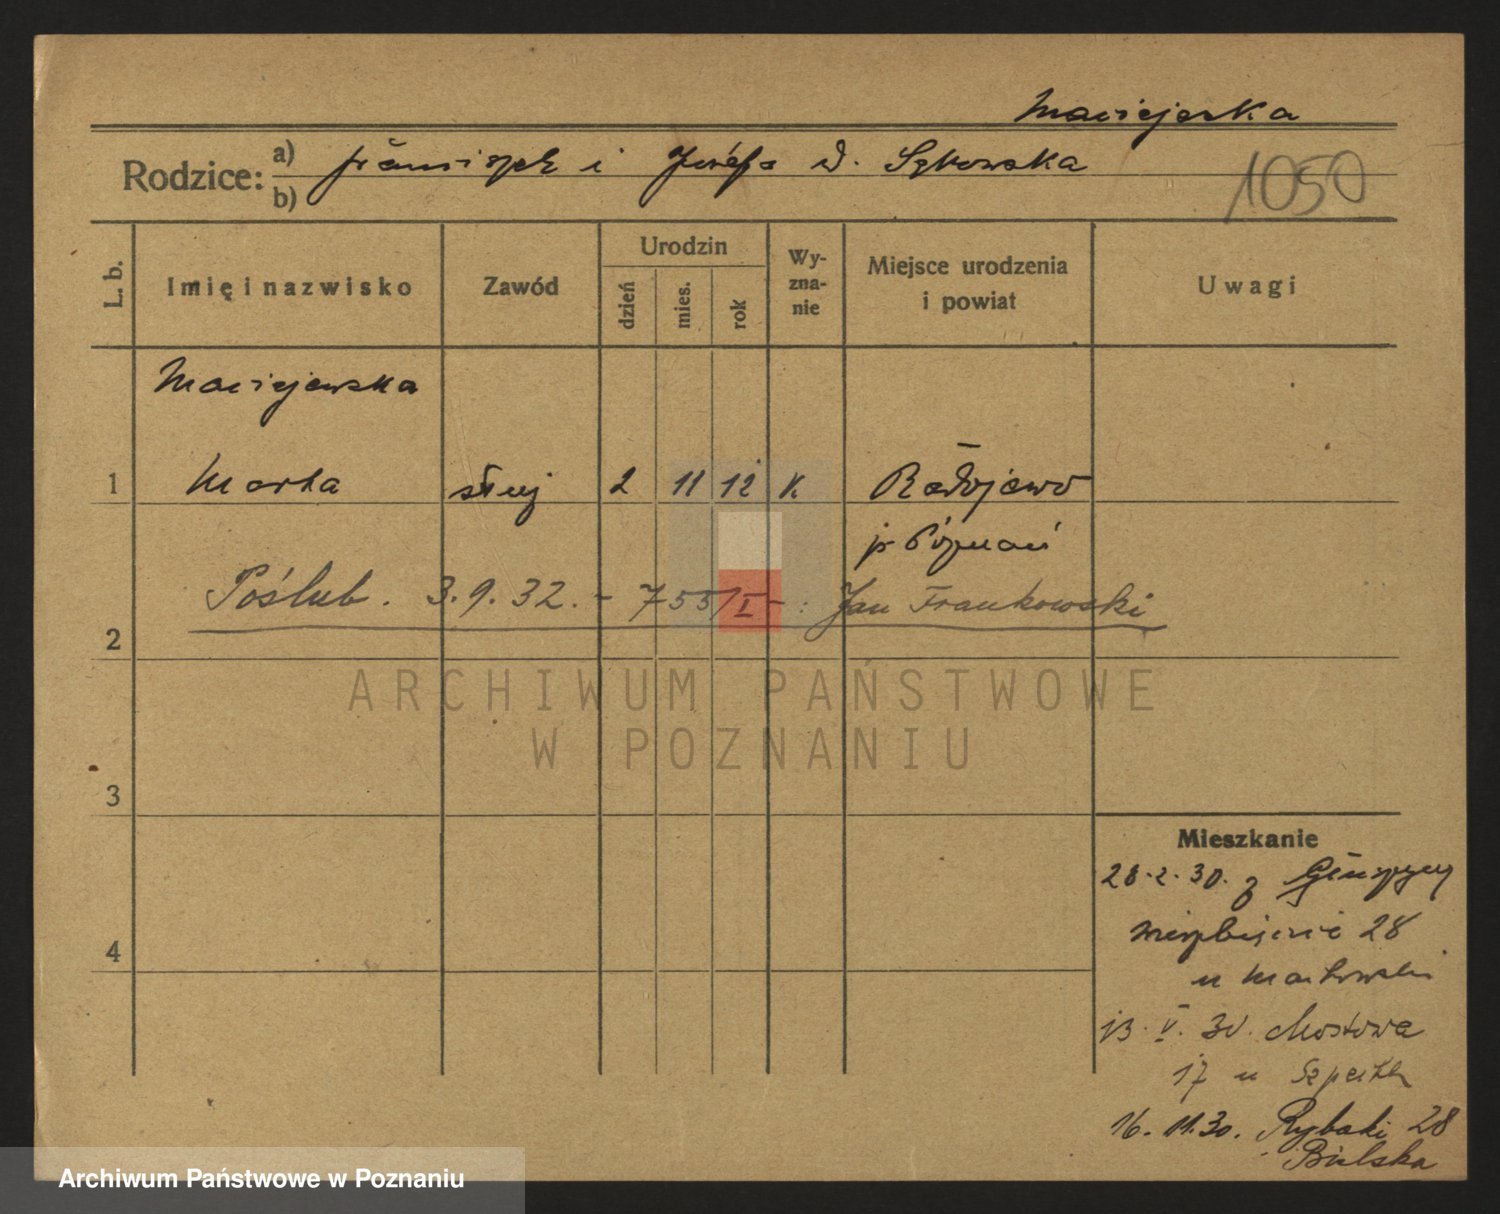 Maciejeska
Rodzice: a) Franciszek i Józefa d. Sękowska
b)
1050
L. b.
Imię i nazwisko
Zawód
Urodzin
dzień
mies.
rok
Wy-
zna-
nie
Miejsce urodzenia
i powiat
Uwagi
Maciejewska
1 Marta służ 2 11 12 k. Radojewo
p Poznań
Poślub. 3.9.32. - 755/I - : Jan Frankowski
2
ARCHIWUM PAŃSTWOWE
W POZNANIU
3
Mieszkanie
28.2.30. z
28
4
u
13.V.30. Mostowa
17 u
16.11.30. Rybaki 28
Bielska
Archiwum Państwowe w Poznaniu